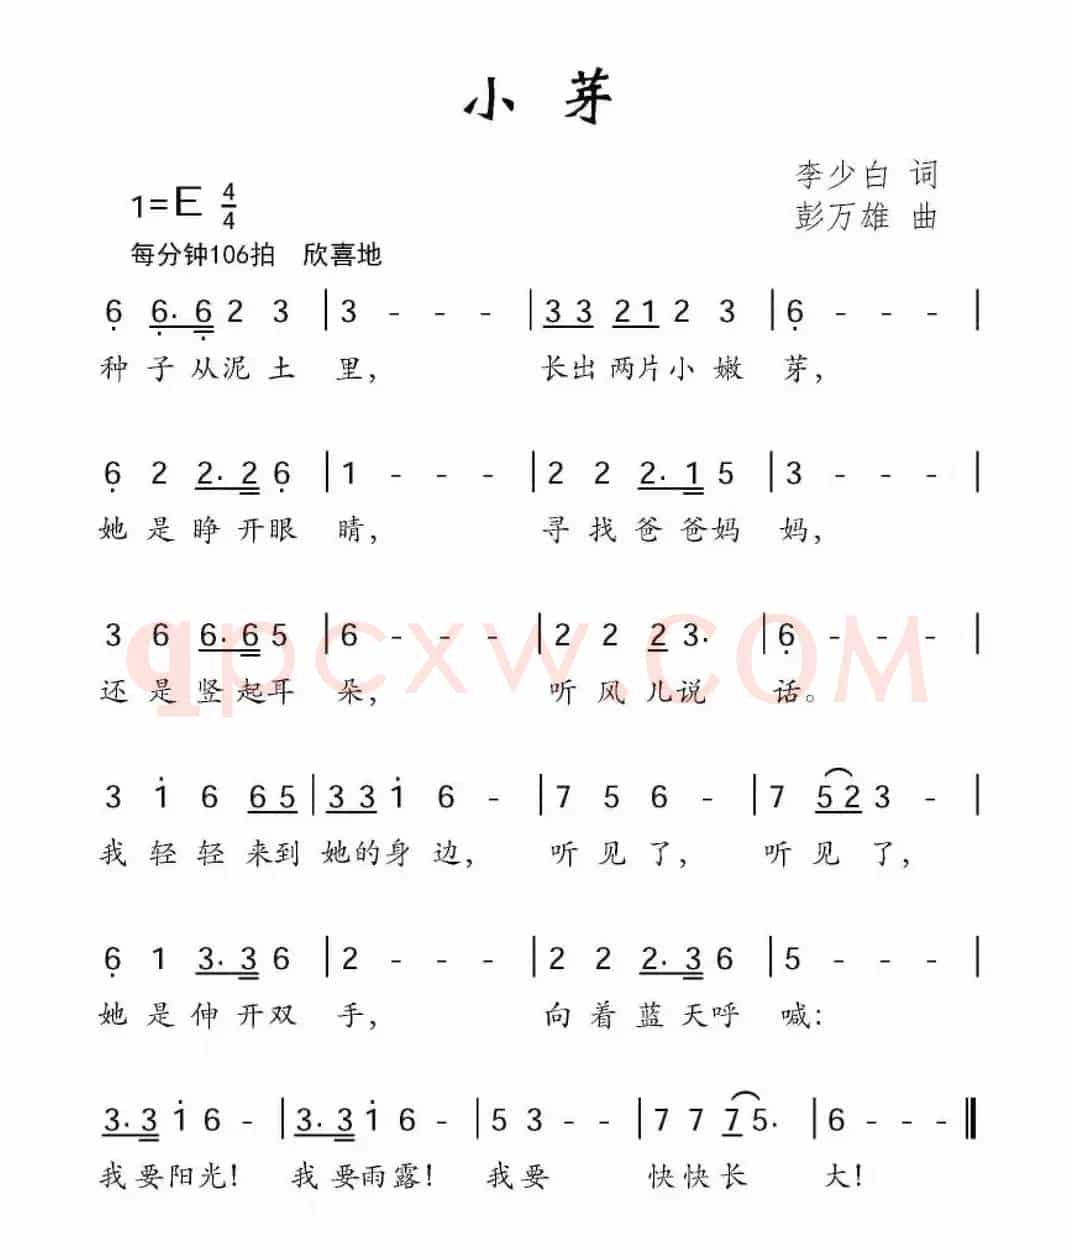 小 芽
李少白 词
彭万雄 曲
1=E 4/4
每分钟106拍 欣喜地
6̣ 6̣. 6̣ 2 3 | 3 - - - | 3 3 2 1 2 3 | 6̣ - - - |
种 子 从 泥 土 里, 长出 两片 小 嫩 芽,
6̣ 2 2. 2 6̣ | 1 - - - | 2 2 2. 1 5 | 3 - - - |
她 是 睁 开 眼 睛, 寻 找 爸 爸 妈 妈,
3 6 6. 6 5 | 6 - - - | 2 2 2 3. | 6̣ - - - |
还 是 竖 起 耳 朵, 听 风 儿 说 话。
qpcxw.COM
3 1̇ 6 6 5 | 3 3 1̇ 6 - | 7 5 6 - | 7 5 2 3 - |
我 轻 轻 来 到 她的 身 边, 听 见 了, 听 见 了,
6̣ 1 3. 3 6 | 2 - - - | 2 2 2. 3 6 | 5 - - - |
她 是 伸 开 双 手, 向 着 蓝 天 呼 喊:
3. 3 1̇ 6 - | 3. 3 1̇ 6 - | 5 3 - - | 7 7 7 5. | 6 - - - ‖
我 要 阳 光! 我 要 雨 露! 我 要 快 快 长 大!